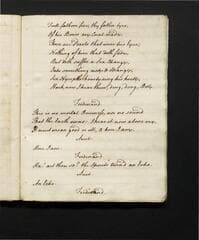 Full fathom five, thy father lyes,
Of his Bones are Coral made:
Those are Pearls that were his Eyes;
Nothing of him that doth fade,
But doth suffer a Sea Change,
Into something rich & Strange,
Sea Nymphs hourly ring his knell,
Hark now I hear them, ding, dong, Bell.
Ferdinand
This is no mortal Business, nor no sound
That the Earth owns: I hear it now above me.
It must mean good or ill, & here I
Aunt
Here I
Ferdinand
Ha! art thou so? the Spirits turn'd an Echo.
Aunt
An Echo.
Ferdinand